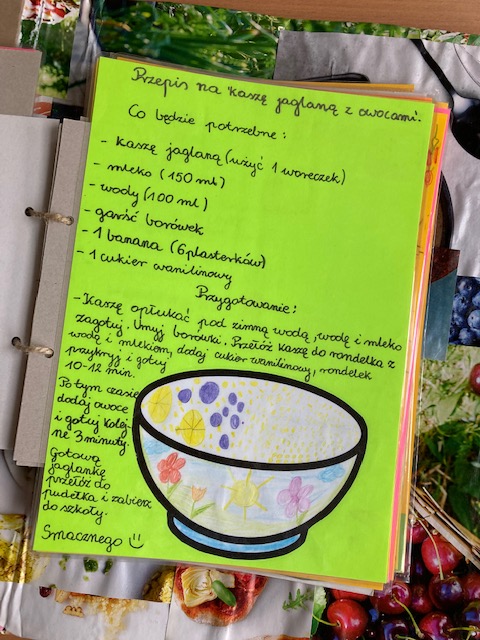 Przepis na kaszę jaglaną z owocami.
Co będzie potrzebne:
- kaszę jaglaną (użyć 1 woreczek)
- mleko (150 ml)
- wody (100 ml)
- garść borówek
- 1 banana (6 plasterków)
- 1 cukier wanilinowy
Przygotowanie:
- Kaszę opłukać pod zimną wodą, wodę i mleko
zagotuj. Umyj borówki. Przełóż kaszę do rondelka z
wodą i mlekiem, dodaj cukier wanilinowy, rondelek
przykryj i gotuj
10-12 min.
Po tym czasie
dodaj owoce
i gotuj kolej-
ne 3 minuty.
Gotową
jaglankę
przełóż do
pudełka i zabierz
do szkoły.
Smacznego